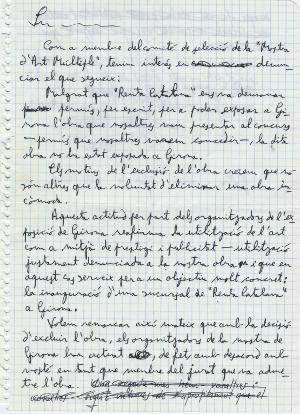 Sr.
Com a membre del comitè de selecció de la "Mostra
d'Art Múltiple", tenim interés en denun-
ciar el que segueix:
Malgrat que "Renta Catalana" ens va demanar
permís, per escrit, per a poder exposar a Gi-
rona l'obra que nosaltres vam presentar al concurs
—permís que nosaltres varem concedir—, la dita
obra no ha estat exposada a Girona.
Els motius de l'exclusió de l'obra creiem que no
són altres que la voluntat d'eliminar una obra in-
còmoda.
Aquesta actitud per part dels organitzadors de l'ex-
posició de Girona reafirma la utilització de l'art
com a mitjà de prestigi i publicitat —utilització
justament denunciada a la nostra obra— i que en
aquest cas serveix per a un objectiu molt concret:
la inauguració d'una sucursal de "Renta Catalana"
a Girona.
Volem remarcar així mateix que amb la decisió
d'excluir l'obra, els organitzadors de la mostra de
Girona han actuat de fet, amb desacord amb
vostè en tant que membre del jurat que va adme-
tre l'obra.